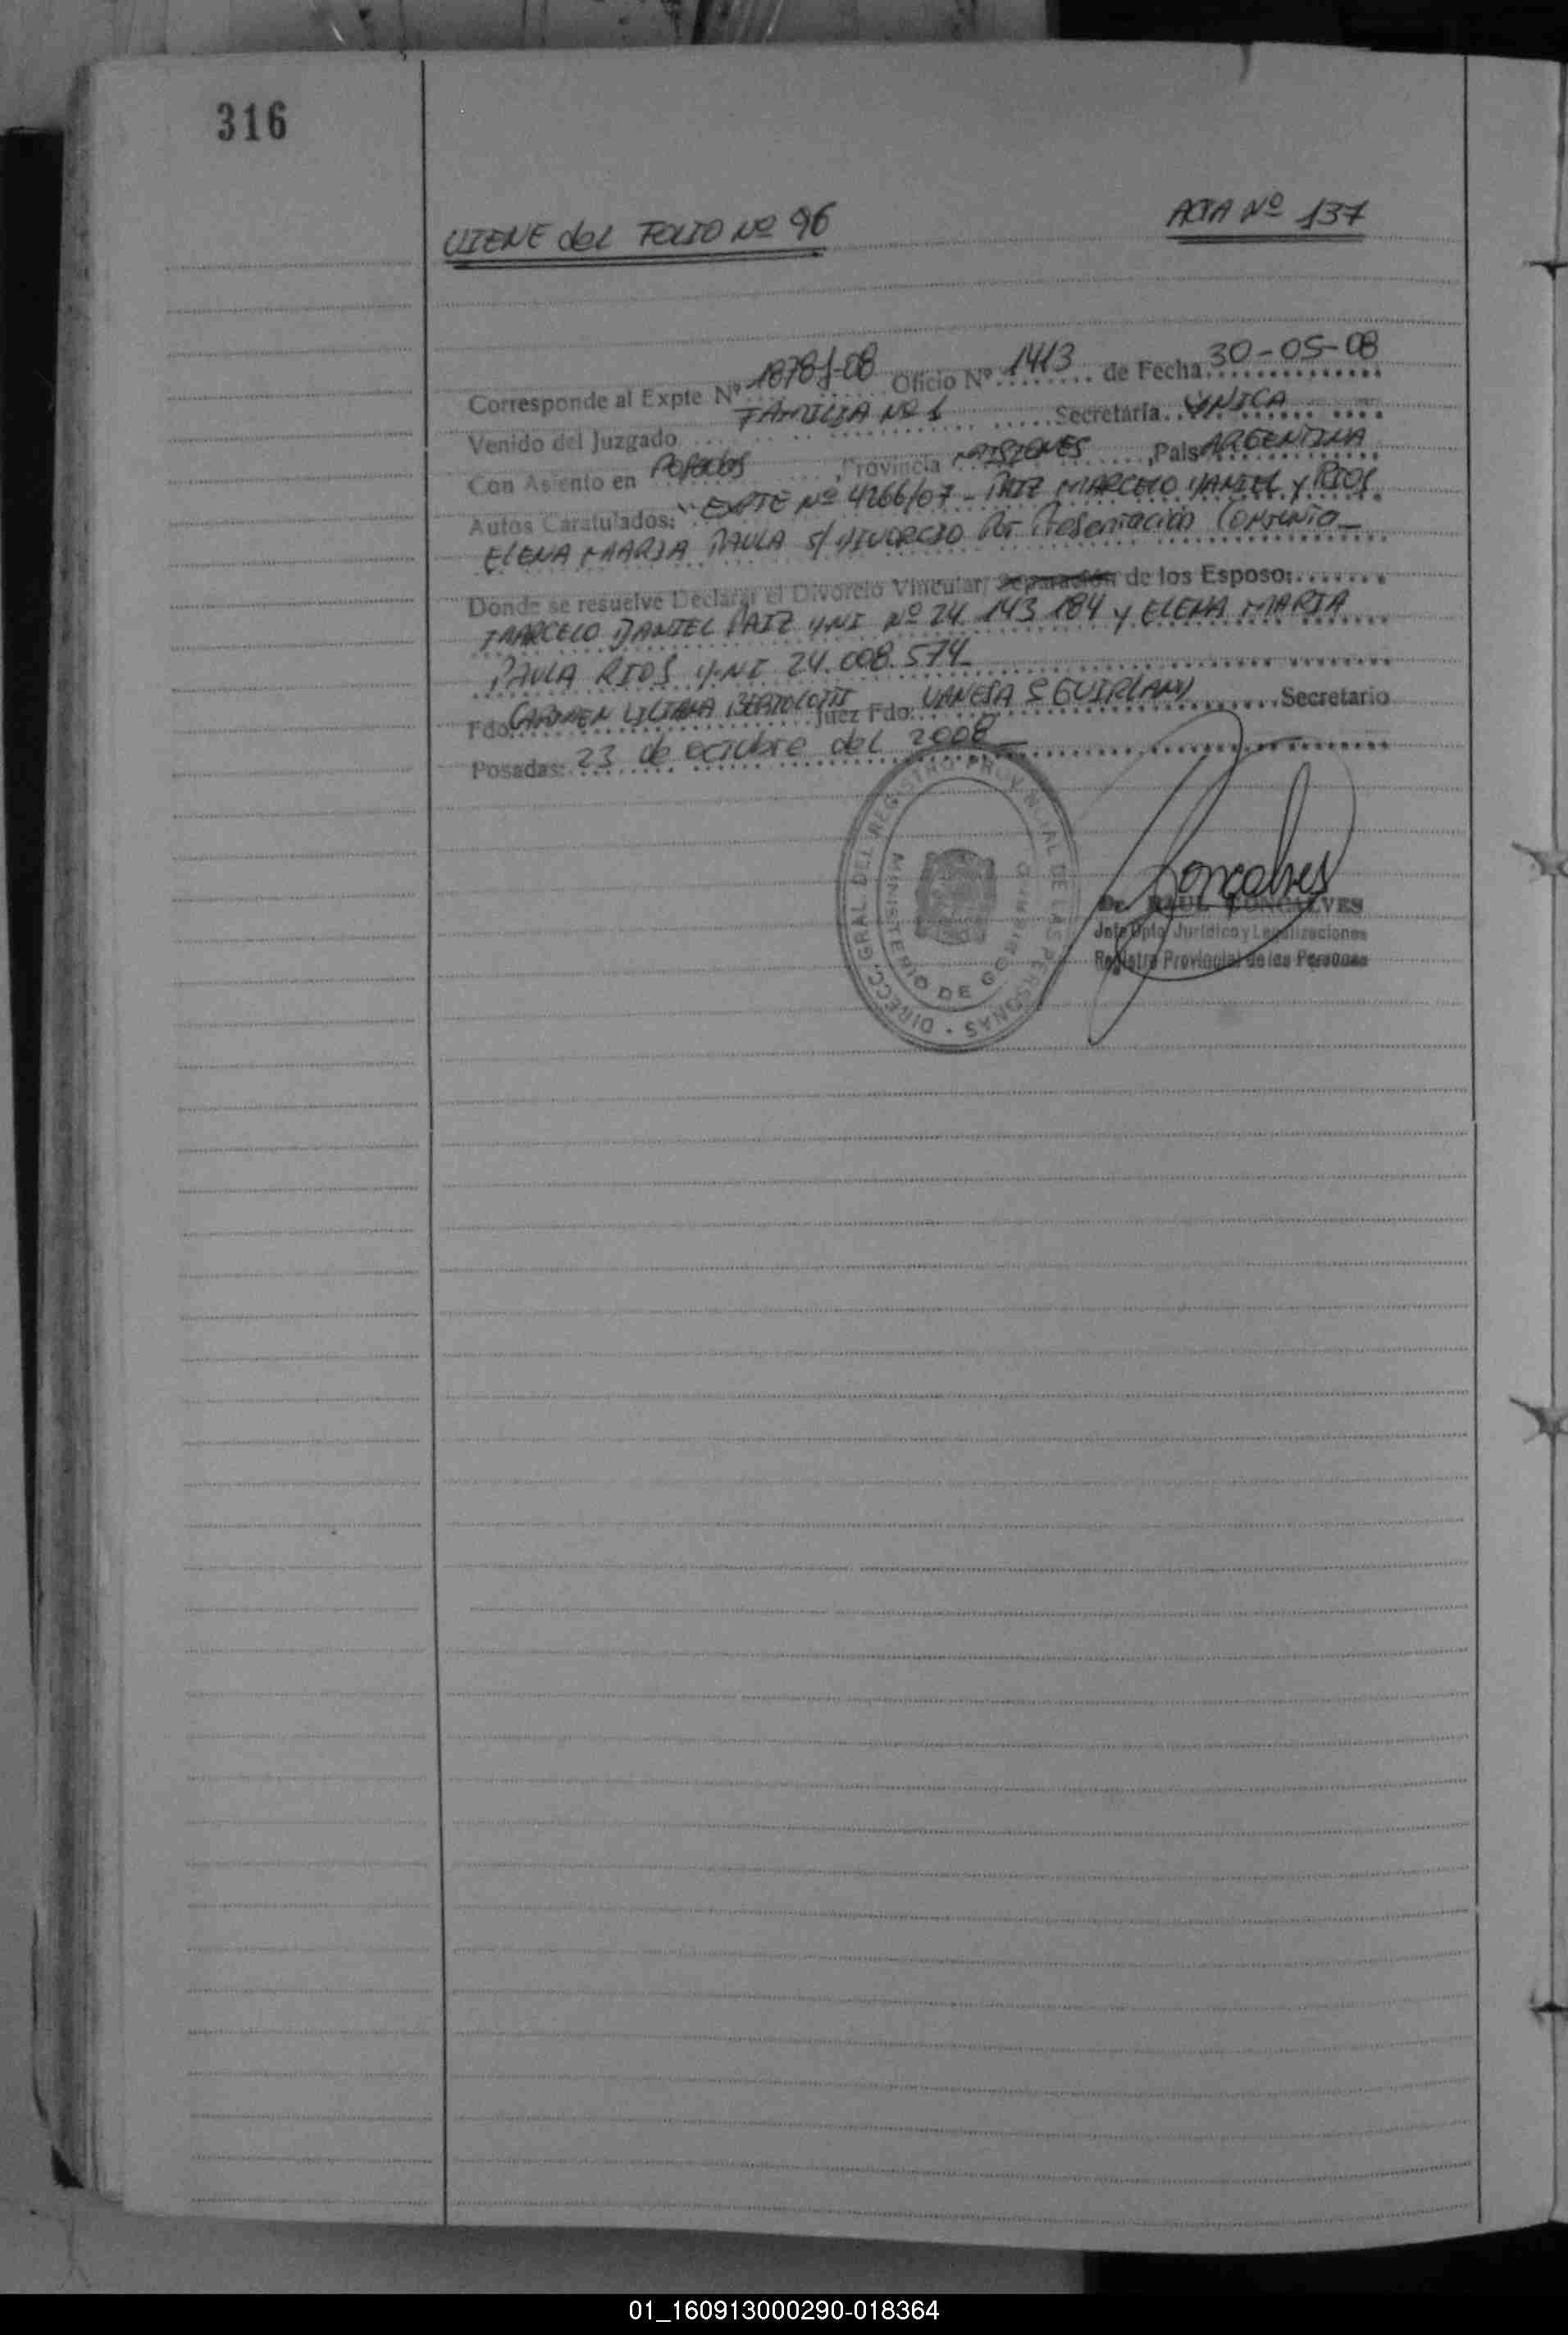 316
VIENE del FOLIO Nº 96
ACTA Nº 137
Corresponde al Expte Nº 1878J-08 Oficio Nº 1413 de Fecha 30-05-08
Venido del Juzgado FAMILIA Nº 1 Secretaria UNICA
Con Asiento en Posadas, Provincia MISIONES, Pais ARGENTINA
Autos Caratulados: "EXPTE Nº 4266/07 - PAIZ MARCELO DANIEL y RIOS
ELENA MARIA PAULA S/ DIVORCIO Por Presentación Conjunta
Donde se resuelve Declarar el Divorcio Vincular/ Separación de los Esposo:
MARCELO DANIEL PAIZ DNI Nº 24.143.184 y ELENA MARIA
PAULA RIOS DNI 24.008.574
Fdo: CARMEN LILIANA BERTOLOTTI Juez Fdo: VANESA S GUIRLAND Secretario
Posadas: 23 de octubre del 2008
DIRECC. GRAL. DEL REGISTRO PROVINCIAL DE LAS PERSONAS
MINISTERIO DE GOBIERNO
Goncalves
Dr. RAUL GONCALVES
Jefe Dpto. Jurídico y Legalizaciones
Registro Provincial de las Personas
01_160913000290-018364